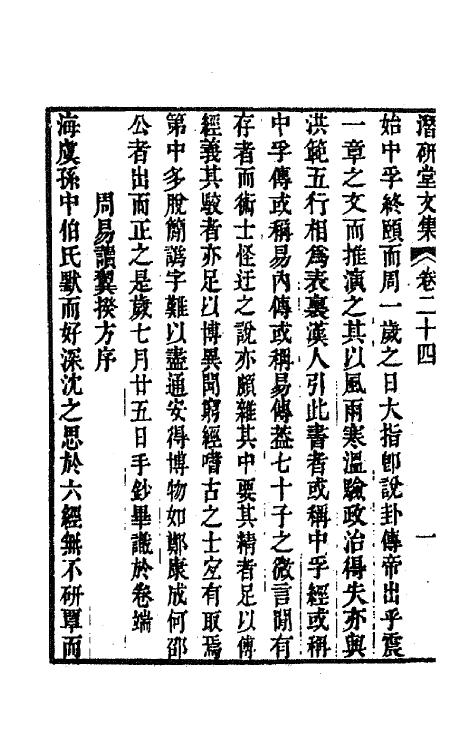 潛研堂文集 卷二十四 一
始中孚終頤而周一歲之日大指卽說卦傳帝出乎震
一章之文而推演之其以風雨寒溫驗政治得失亦與
洪範五行相爲表裏漢人引此書者或稱中孚經或稱
中孚傳或稱易內傳或稱易傳葢七十子之微言閒有
存者而術士怪迂之說亦頗雜其中要其精者足以傳
經義其駁者亦足以博異聞窮經嗜古之士宜有取焉
第中多脫簡譌字難以盡通安得博物如鄭康成何邵
公者出而正之是歲七月廿五日手鈔畢識於卷端
周易讀翼揆方序
海虞孫中伯氏默而好深沈之思於六經無不研覃而